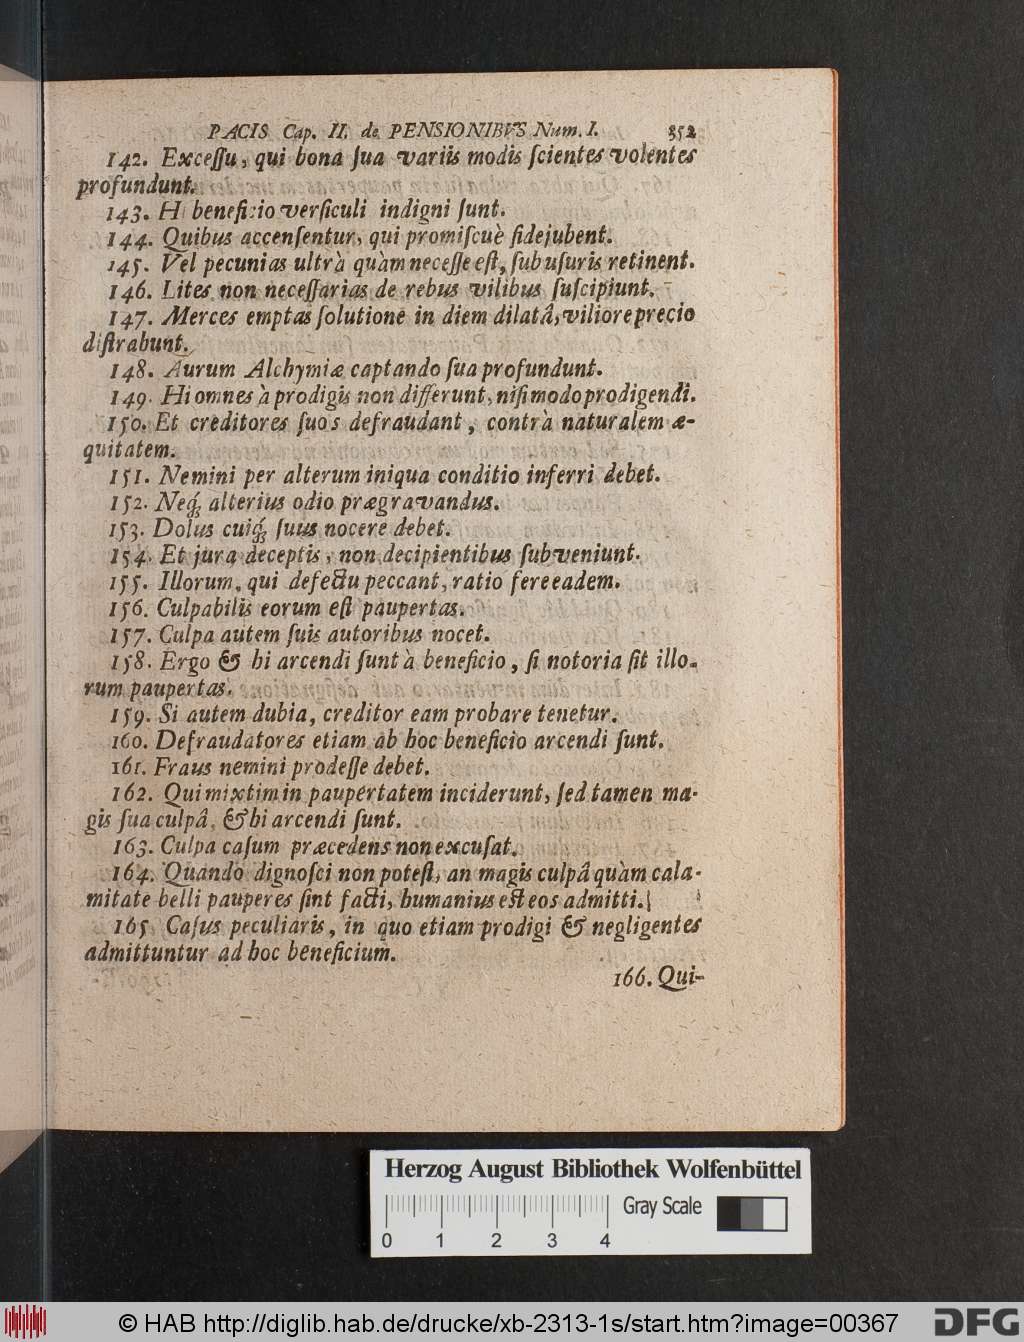 PACIS Cap. II. de PENSIONIBVS Num. I. 352
142. Exceſſu, qui bona ſua variis modis ſcientes volentes
profundunt.
143. Hi beneficio verſiculi indigni ſunt.
144. Quibus accenſentur, qui promiſcuè fidejubent.
145. Vel pecunias ultrà quàm neceſſe eſt, ſub uſuris retinent.
146. Lites non neceſſarias de rebus vilibus ſuſcipiunt.
147. Merces emptas ſolutione in diem dilatâ, viliore precio
diſtrahunt.
148. Aurum Alchymiæ captando ſua profundunt.
149. Hi omnes à prodigis non differunt, niſi modo prodigendi.
150. Et creditores ſuos defraudant, contrà naturalem æ-
quitatem.
151. Nemini per alterum iniqua conditio inferri debet.
152. Neq́; alterius odio prægravandus.
153. Dolus cuiq́; ſuus nocere debet.
154. Et jura deceptis, non decipientibus ſubveniunt.
155. Illorum, qui defectu peccant, ratio fere eadem.
156. Culpabilis eorum eſt paupertas.
157. Culpa autem ſuis autoribus nocet.
158. Ergo & hi arcendi ſunt à beneficio, ſi notoria ſit illo-
rum paupertas.
159. Si autem dubia, creditor eam probare tenetur.
160. Defraudatores etiam ab hoc beneficio arcendi ſunt.
161. Fraus nemini prodeſſe debet.
162. Qui mixtim in paupertatem inciderunt, ſed tamen ma-
gis ſua culpâ, & hi arcendi ſunt.
163. Culpa caſum præcedens non excuſat.
164. Quando dignoſci non poteſt, an magis culpâ quàm cala-
mitate belli pauperes ſint facti, humanius eſt eos admitti.
165 Caſus peculiaris, in quo etiam prodigi & negligentes
admittuntur ad hoc beneficium.
166. Qui-
Herzog August Bibliothek Wolfenbüttel
Gray Scale
0 1 2 3 4
© HAB http://diglib.hab.de/drucke/xb-2313-1s/start.htm?image=00367
DFG